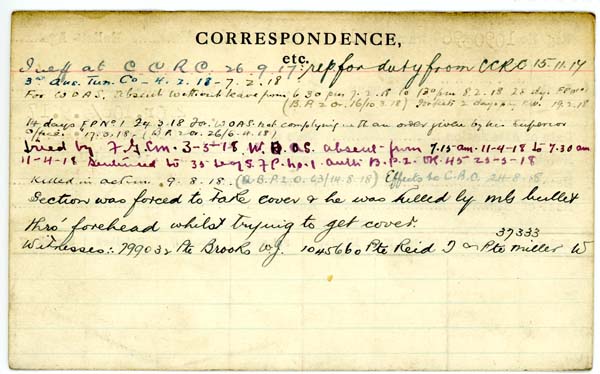 CORRESPONDENCE,
etc.
Ineff at C.C.R.C. 26.9.17: rep for duty from CCRC 15.11.17
3rd Aus. Tun. Co - 4.2.18 - 7.2.18
For W.O.A.S. Absent without leave from 6.30 pm 7.2.18 to pm 8.2.18 28 days F.P.No 1
(B.P.2 Or. 16/10.3.18) Forfeits 2 days pay 19.2.18
14 days F.P.No 1 24.3.18 For W.O.A.S. not complying with an order given by his superior
officer 17.3.18 - (B.P.2 Or. 26/6.4.18)
Tried by F.G.C.M. 3-5-18 W.O.A.S. absent from 7.15 am. 11-4-18 to 7.30 am
11-4-18 Sentenced to 35 days F.P. No. 1. auth B.P.2. OR. 45 23-5-18
Killed in action 9.8.18. (B.P.2.O. 63/14.8.18) Effects to C.B.O. 24.8.18.
Section was forced to take cover & he was killed by m/g bullet
thro' forehead whilst trying to get cover.
37333
Witnesses:. 799032 Pte Brooks W.J. 1045660 Pte Reid J & Pte Miller W